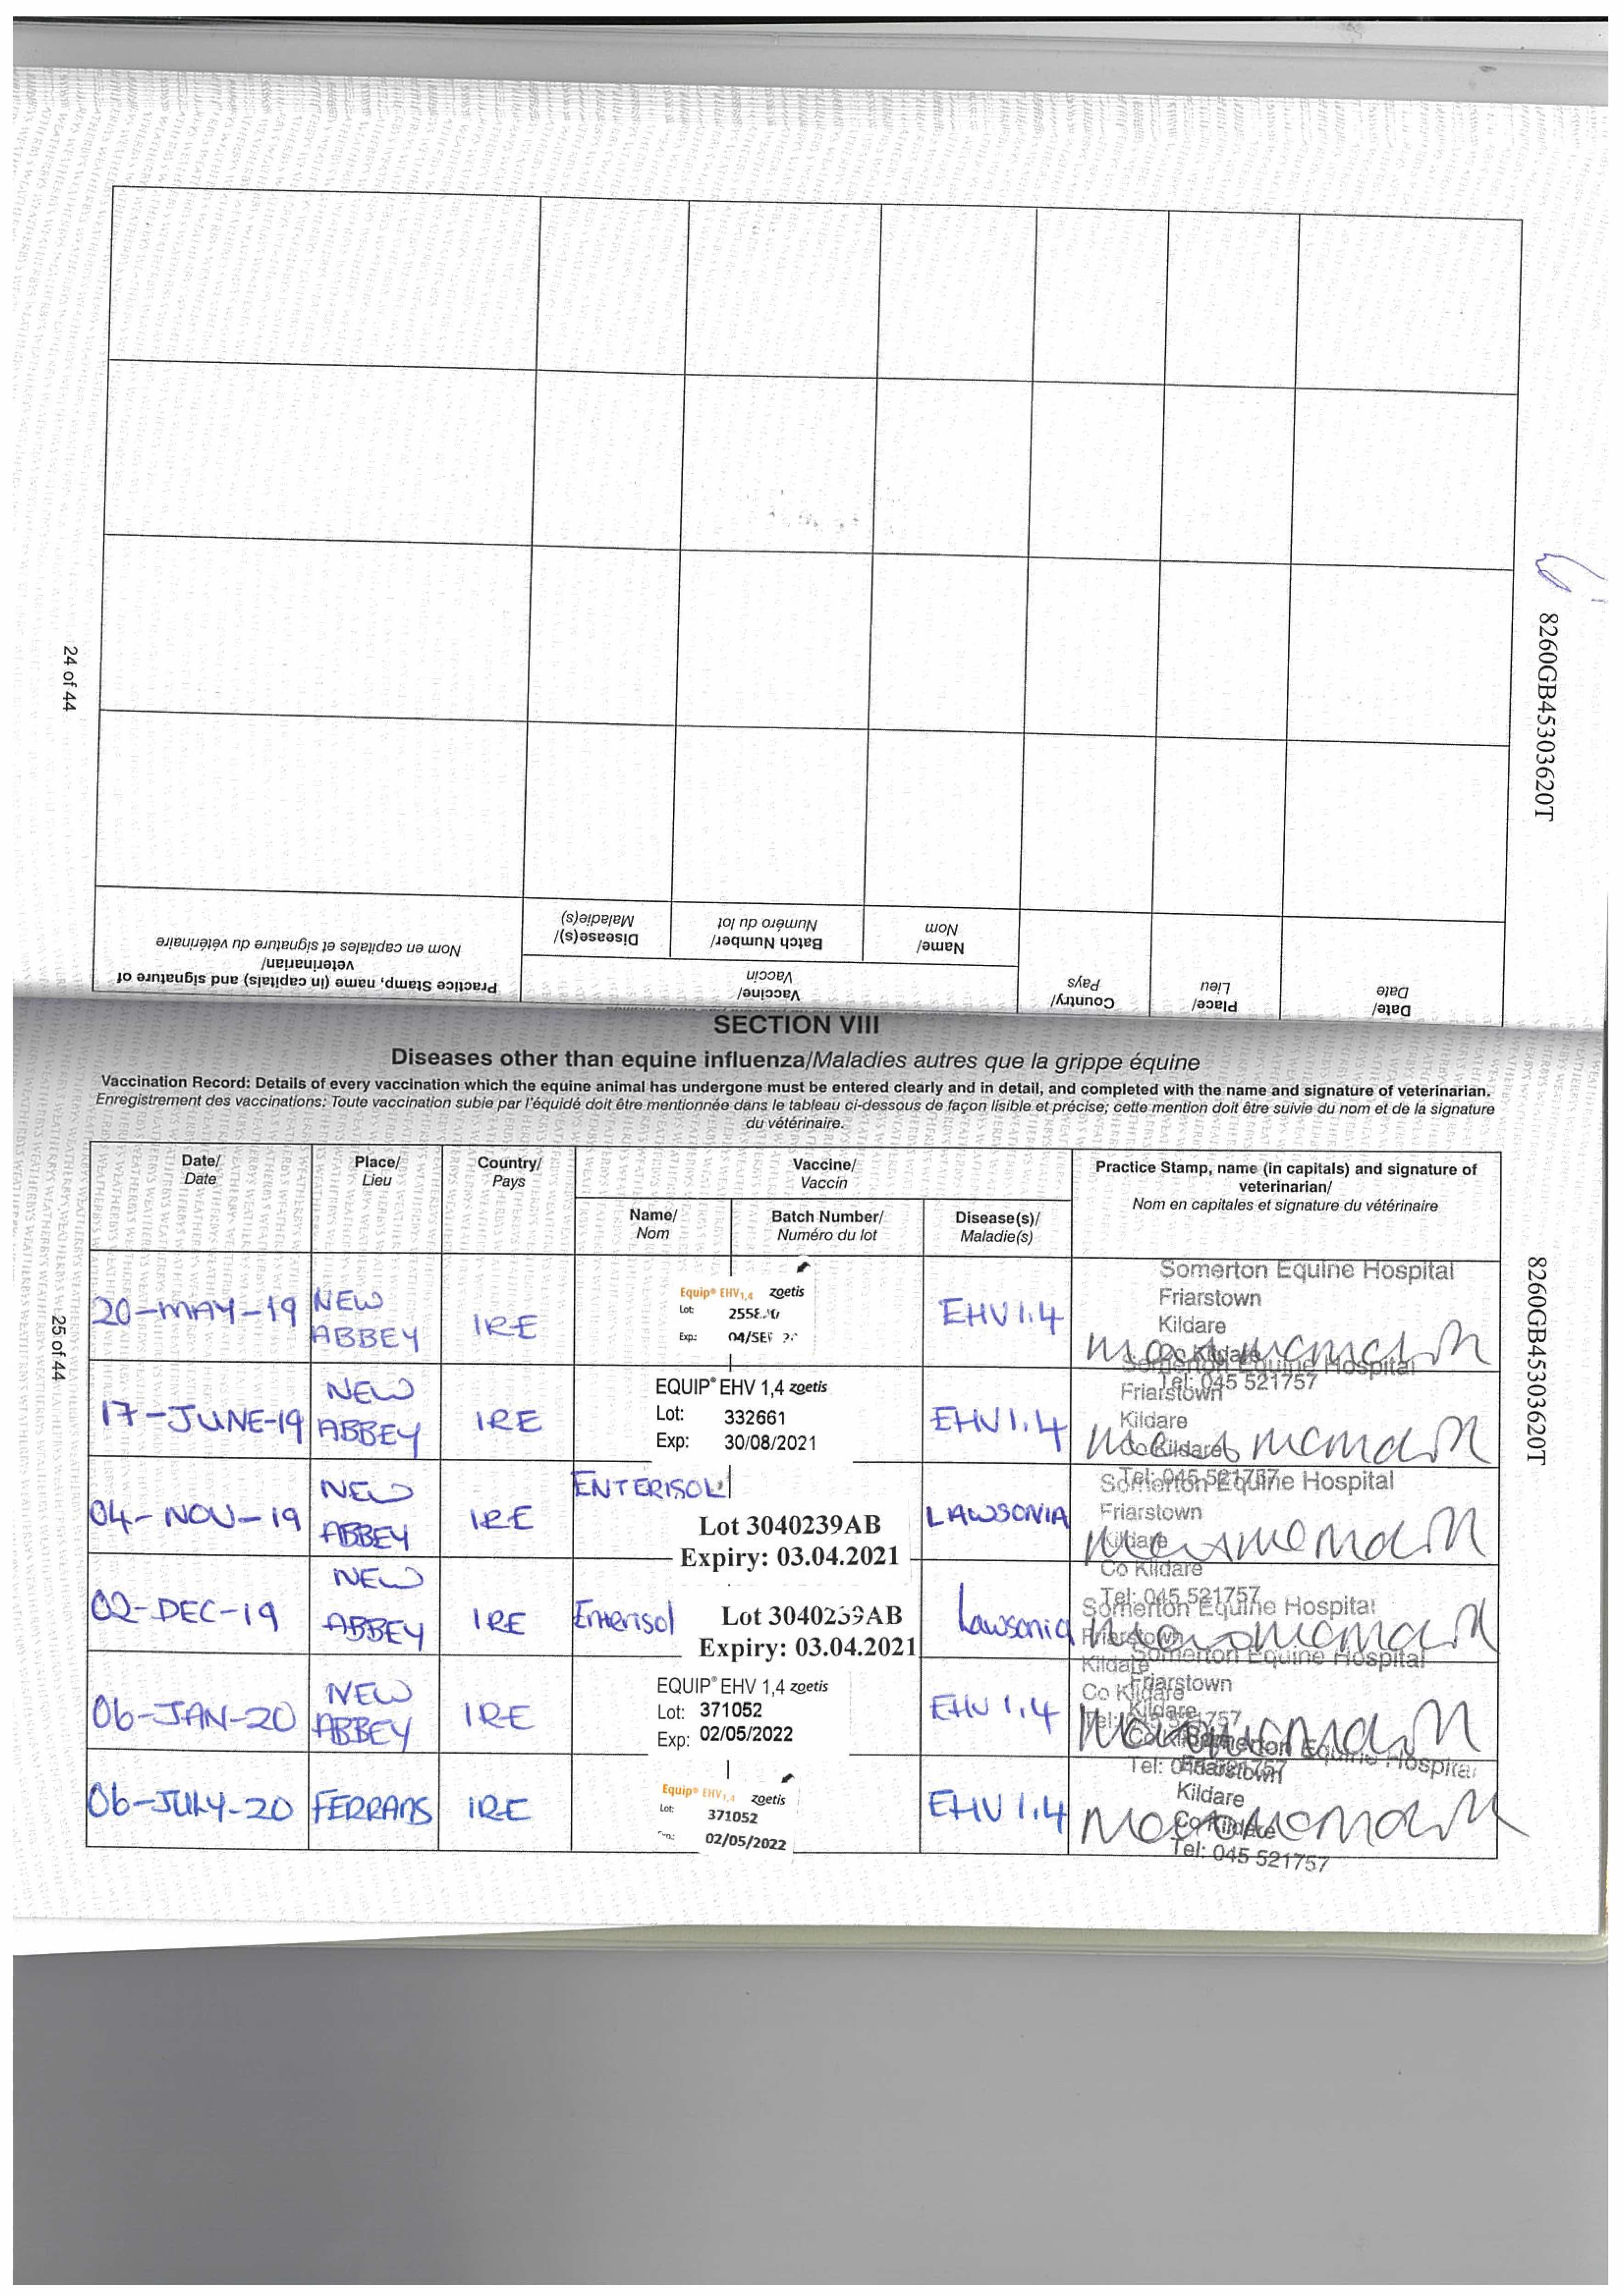 24 of 44
8260GB45303620T
Practice Stamp, name (in capitals) and signature of
veterinarian/
Nom en capitales et signature du vétérinaire
Vaccine/
Vaccin
Disease(s)/
Maladie(s)
Batch Number/
Numéro du lot
Name/
Nom
Country/
Pays
Place/
Lieu
Date/
Date
SECTION VIII
Diseases other than equine influenza/Maladies autres que la grippe équine
Vaccination Record: Details of every vaccination which the equine animal has undergone must be entered clearly and in detail, and completed with the name and signature of veterinarian.
Enregistrement des vaccinations: Toute vaccination subie par l'équidé doit être mentionnée dans le tableau ci-dessous de façon lisible et précise; cette mention doit être suivie du nom et de la signature
du vétérinaire.
Date/
Date
Place/
Lieu
Country/
Pays
Vaccine/
Vaccin
Name/
Nom
Batch Number/
Numéro du lot
Disease(s)/
Maladie(s)
Practice Stamp, name (in capitals) and signature of
veterinarian/
Nom en capitales et signature du vétérinaire
20-MAY-19
NEW
ABBEY
IRE
Equip® EHV1,4 zoetis
Lot:
Exp.:
EHV 1.4
Somerton Equine Hospital
Friarstown
Kildare
Co Kildare
Tel: 045 521757
17-JUNE-19
NEW
ABBEY
IRE
EQUIP® EHV 1,4 zoetis
Lot: 332661
Exp: 30/08/2021
EHV 1.4
Somerton Equine Hospital
Friarstown
Kildare
Co Kildare
Tel: 045 521757
04-NOV-19
NEW
ABBEY
IRE
ENTERISOL
Lot 3040239AB
Expiry: 03.04.2021
LAWSONIA
Somerton Equine Hospital
Friarstown
Kildare
Co Kildare
Tel: 045 521757
02-DEC-19
NEW
ABBEY
IRE
Enterisol
Lot 3040239AB
Expiry: 03.04.2021
Lawsonia
Somerton Equine Hospital
Friarstown
Kildare
Co Kildare
Tel: 045 521757
06-JAN-20
NEW
ABBEY
IRE
EQUIP® EHV 1,4 zoetis
Lot: 371052
Exp: 02/05/2022
EHV 1.4
Somerton Equine Hospital
Friarstown
Kildare
Co Kildare
Tel: 045 521757
06-JULY-20
FERRANS
IRE
Equip® EHV1,4 zoetis
Lot: 371052
02/05/2022
EHV 1.4
Somerton Equine Hospital
Friarstown
Kildare
Co Kildare
Tel: 045 521757
25 of 44
8260GB45303620T